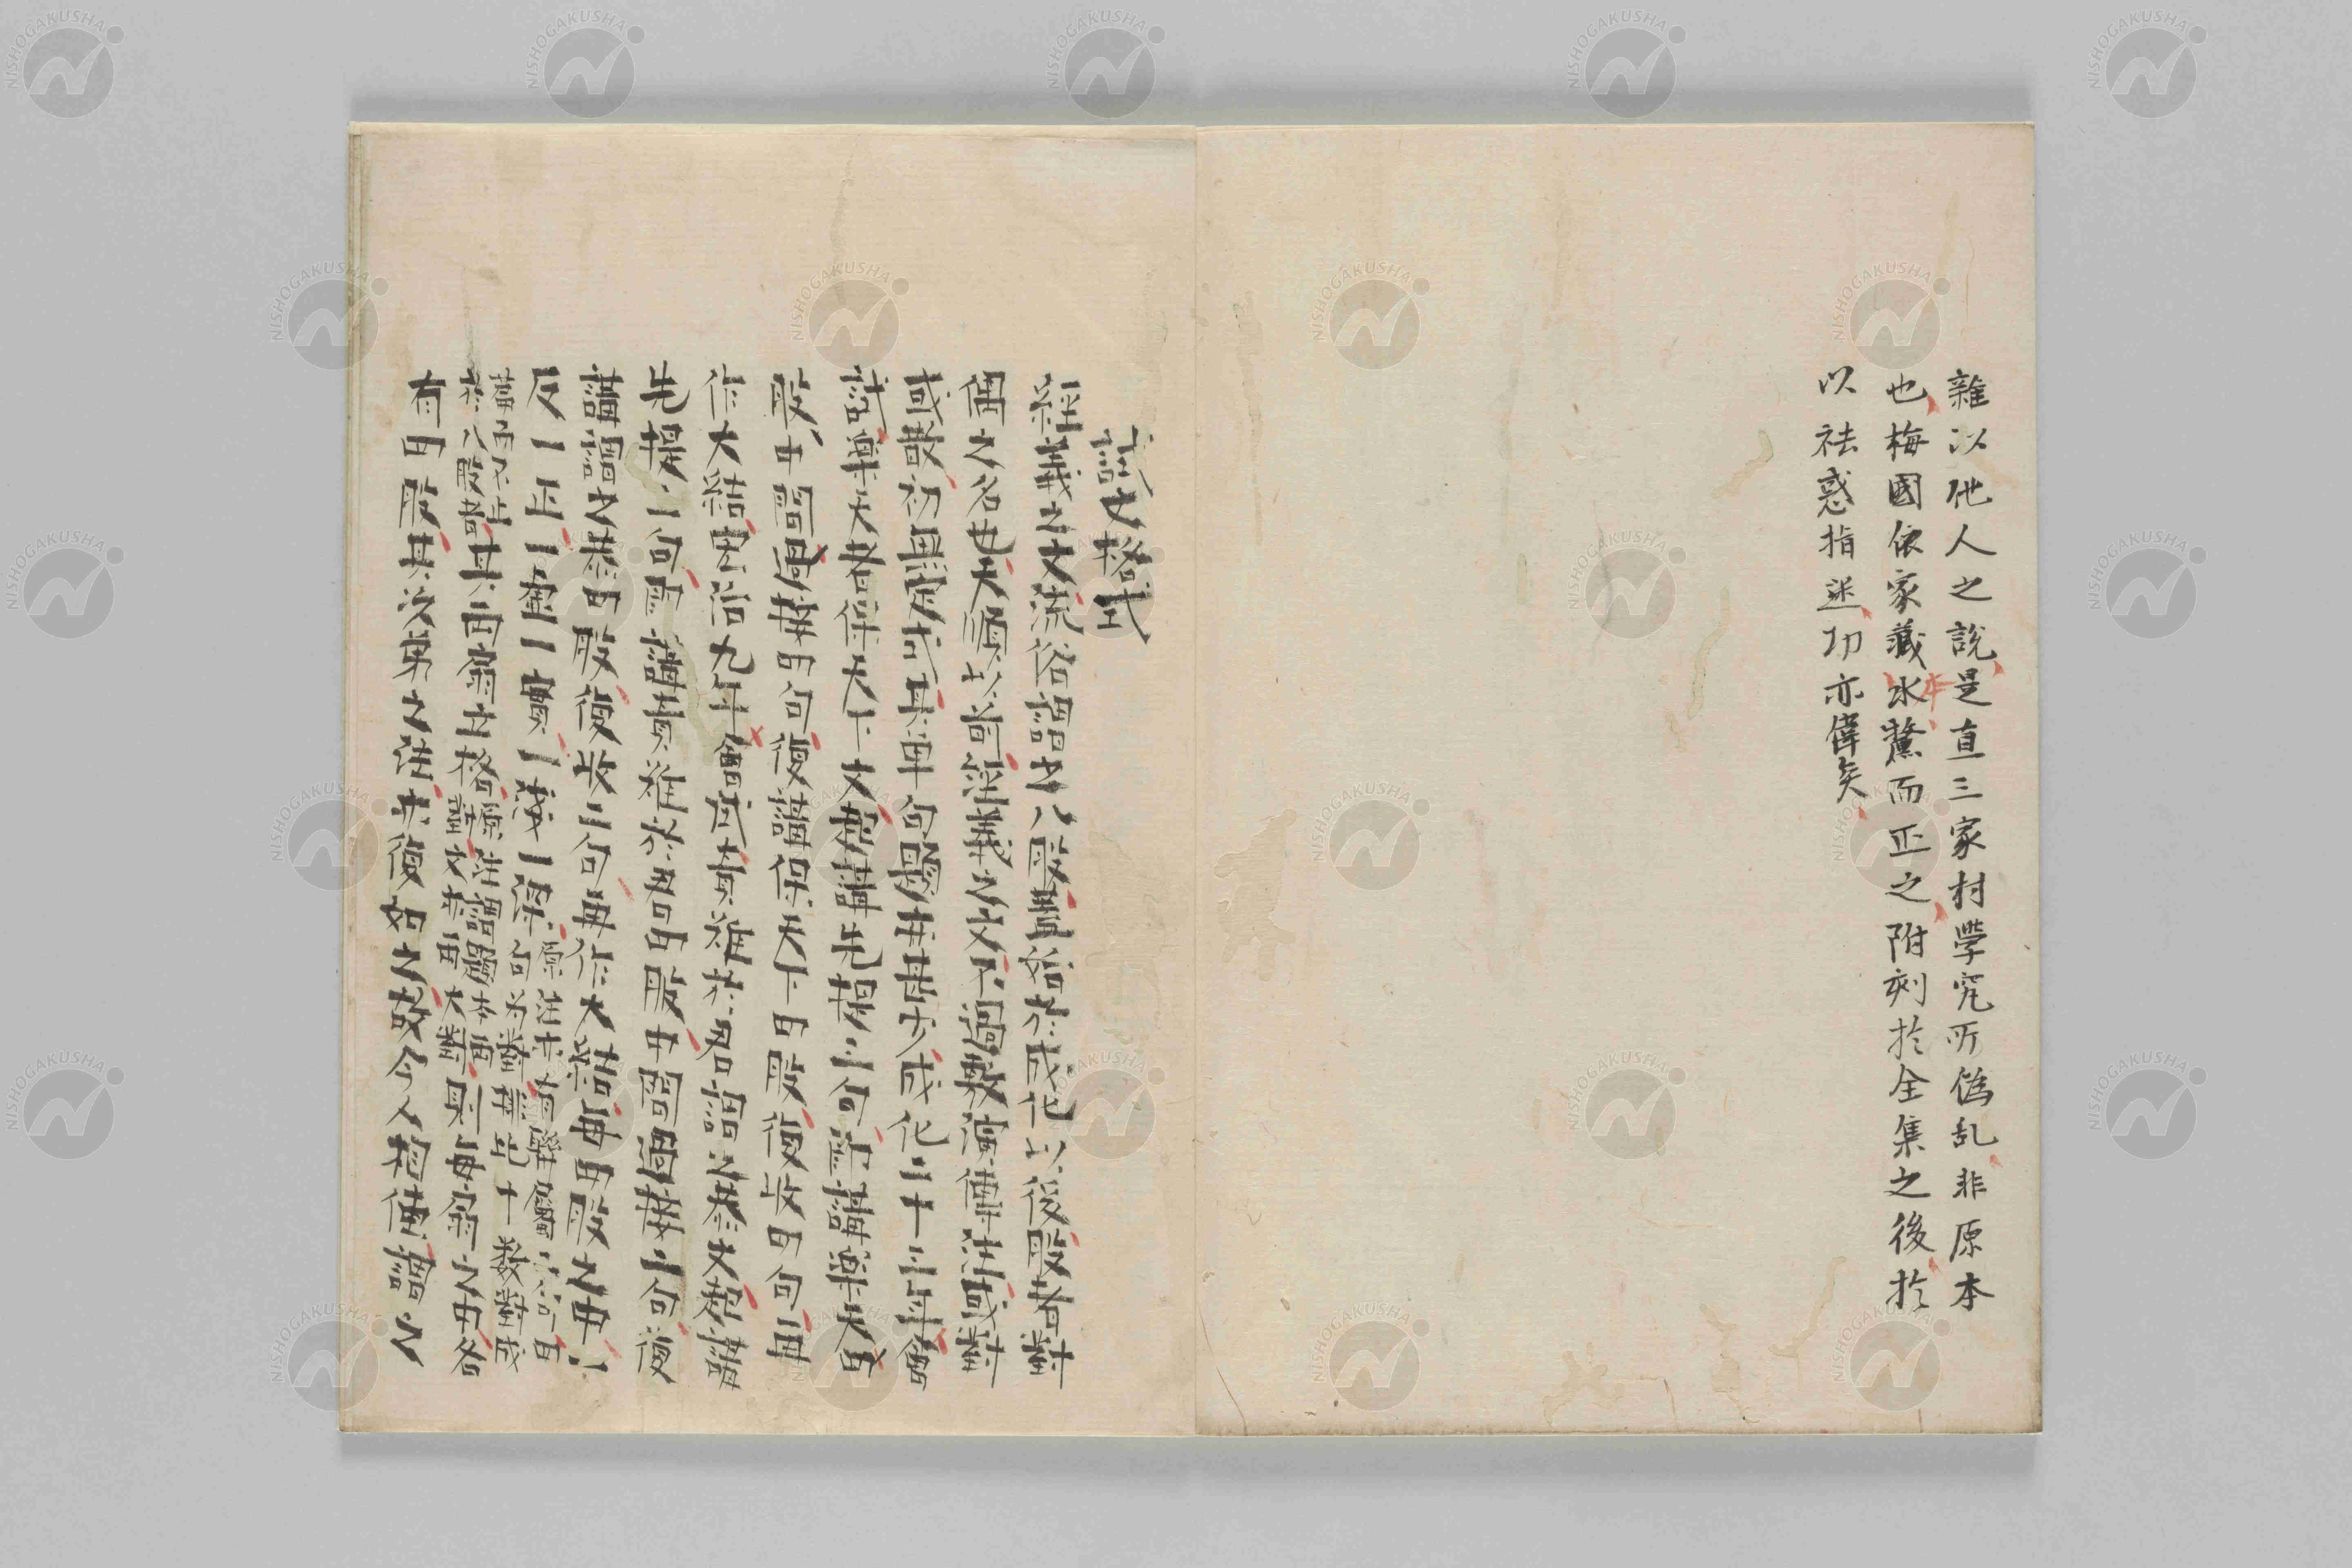 雜以他人之說是直三家村學究所偽乱非原本
也梅國依家藏水本釐而正之附刻於全集之後於
以祛惑指迷功亦偉矣
試文格式
經義之文流俗謂之八股蓋始於成化以後股者對
偶之名也天順以前經義之文不過敷演傳注或對
或散初無定式其單句題亦甚少成化二十三年會
試樂天者保天下文起講先提三句即講樂天四
股中間過接四句復講保天下四股復收四句再
作大結弘治九年會試責難於君謂之恭文起講
先提三句即講責難於君四股中間過接二句復
講謂之恭四股復收二句再作大結每四股之中一
反一正一虛一實一淺一深原注亦有聯屬二句四句為對排比十數對成
篇而不止於八股者其兩扇立格原注謂題本兩對文亦兩大對則每扇之中各
有四股其次第之法亦復如之故今人相傳謂之